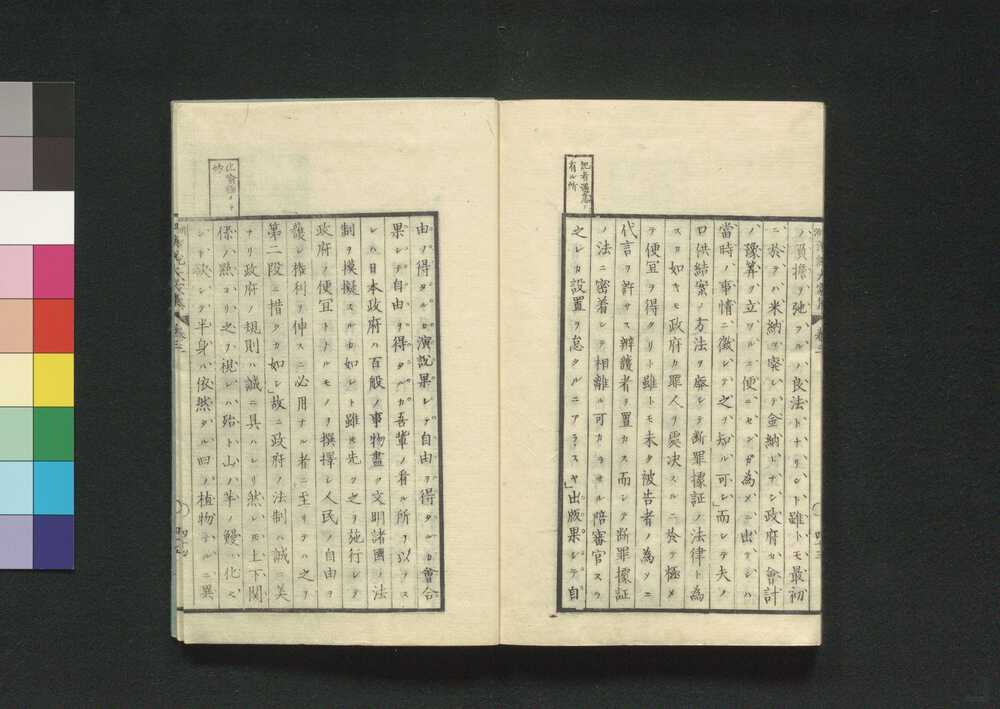 記者遺憾ノ
有ル所
ノ負擔ヲ弛フルノ良法トナリシト雖トモ最初
ニ於テハ米納ヲ廃シテ金納ドナシ政府カ會計
ノ豫算ヲ立ツルニ便ニセシガ為メニ出テシハ
當時ノ事情ニ徴シテ之ヲ知ル可レ」而シテ夫ノ
口供結案ノ方法ヲ廢シテ断罪據証ノ法律ト為
スカ如キモ政府カ罪人ヲ處决スルニ於テ極メ
テ便冝ヲ得タリト雖トモ未タ被告者ノ為メニ
代言ヲ許サス辨護者ヲ置カス而シテ断罪據証
ノ法ニ密着シテ相離ル可カラサル陪審官スラ
之レカ設置ヲ怠タルニアラスヤ」出版果シテ自
由ノ得タルカ演説果シテ自由ヲ得タルカ會合
果シテ自由ヲ得タルカ吾輩ノ看ル所ヲ以テス
レハ日本政府ハ百般ノ事物盡ク文明諸國ノ法
制ヲ模擬スルカ如シト雖モ先ツ之ヲ施行シテ
政府ノ便冝トナルモノヲ撰擇シ人民ノ自由ヲ
護シ権利ヲ伸スニ必用ナル者ニ至リテハ之ヲ
第二段ニ措クカ如シ」故ニ政府ノ法制ハ誠ニ美
ナリ政府ノ規則ハ誠ニ具ハレリ然レ𪜈上下関
係ノ點ヨリ之ヲ視レハ殆ト山ノ芋ノ鰻ニ化ス
ントシテ半身ハ依然タル四ノ植物タルニ異